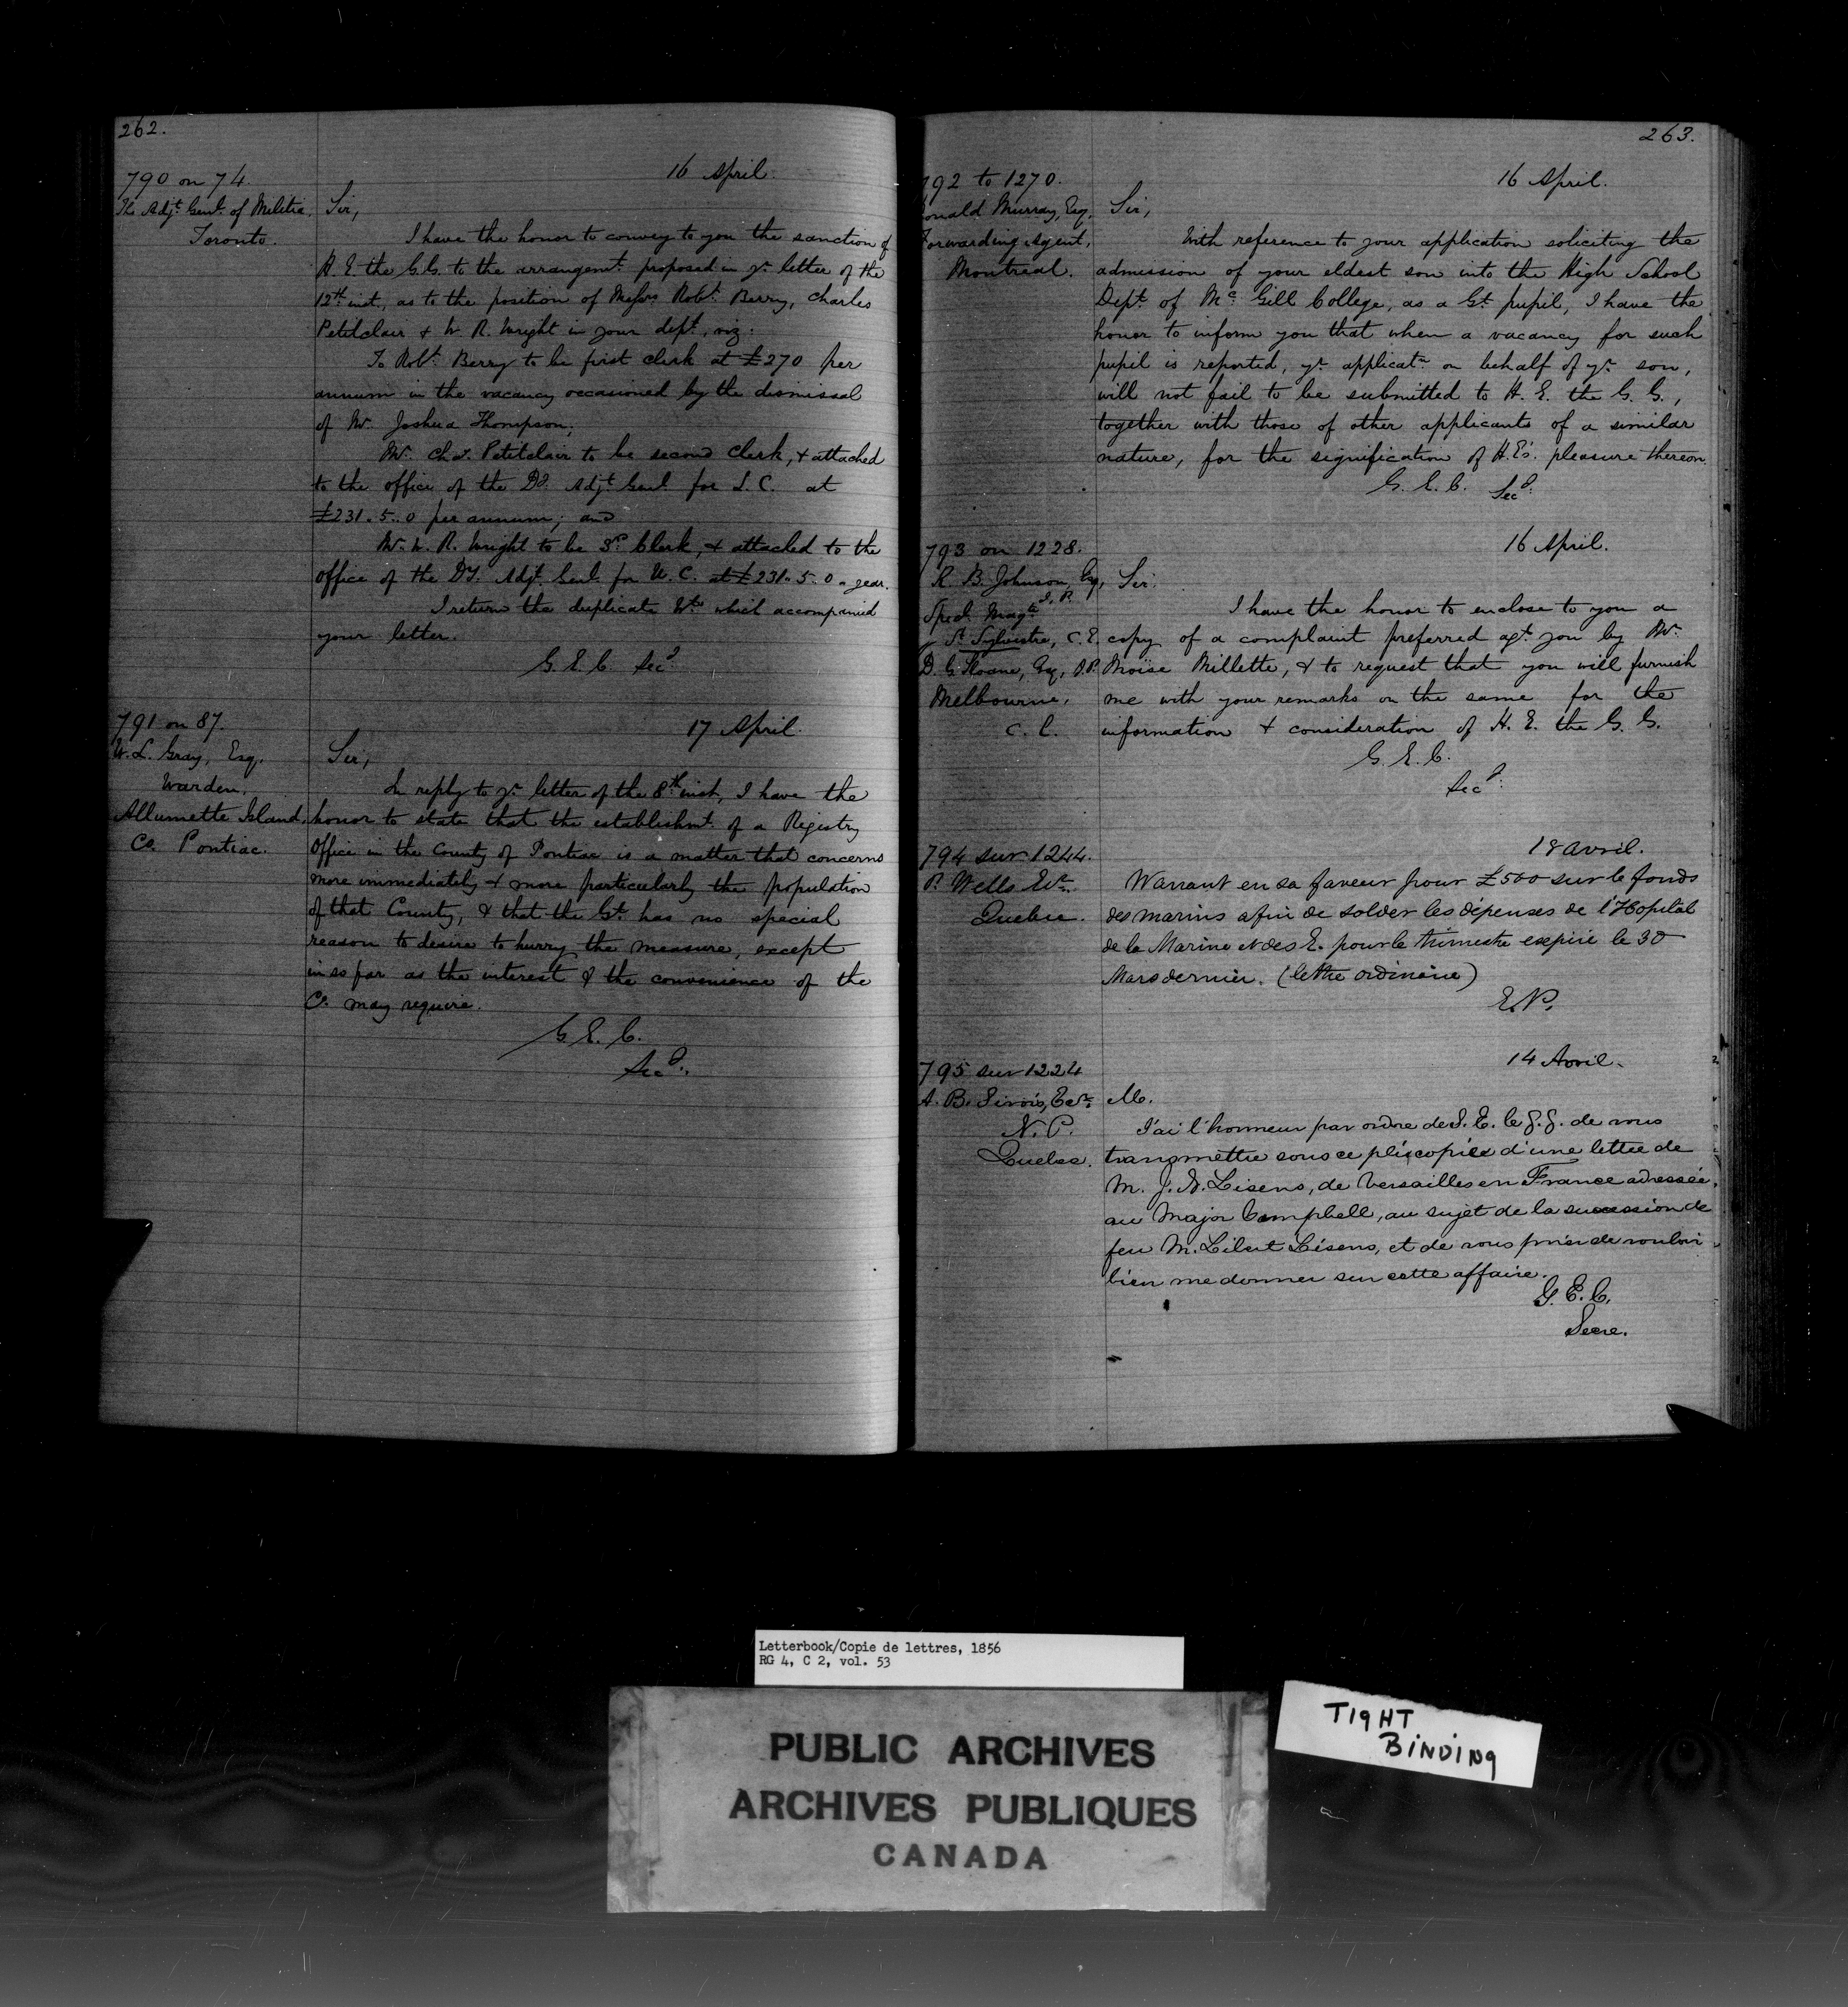 262.
790 on 74.
16 April.
The Adjt. Genl. of Militia,
Toronto.
Sir,
I have the honor to convey to you the sanction of
H. E. the G. G. to the arrangemt. proposed in yr. letter of the
12th inst, as to the position of Messrs Robt. Berry, Charles
Petitclair & W. R. Wright in your dept, viz:
To Robt. Berry to be first clerk at £270 per
annum in the vacancy occasioned by the dismissal
of Mr. Joshua Thompson;
Mr. Chs. Petitclair to be second Clerk, & attached
to the office of the Dy. Adjt. Genl. for L. C. at
£231. 5. 0 per annum; and
Mr. W. R. Wright to be 3rd. Clerk, & attached to the
office of the Dy. Adjt. Genl. for U. C. at £231. 5. 0 a year.
I return the duplicate which accompanied
your letter.
G. E. C. Secy.
791 on 87.
17 April.
W. L. Gray, Esq.
Warden.
Allumette Island,
Co. Pontiac.
Sir,
In reply to yr. letter of the 8th inst, I have the
honor to state that the establishmt. of a Registry
Office in the County of Pontiac is a matter that concerns
more immediately & more particularly the population
of that County, & that the Gt. has no special
reason to desire to hurry the measure, except
in so far as the interest & the convenience of the
Co. may require.
G. E. C.
Secy.
263.
792 to 1270.
16 April.
Donald Murray, Esq.
Forwarding Agent,
Montreal.
Sir,
With reference to your application soliciting the
admission of your eldest son into the High School
Dept. of Mc. Gill College, as a Gt. pupil, I have the
honor to inform you that when a vacancy for such
pupil is reported, yr. applicatn. on behalf of yr. son,
will not fail to be submitted to H. E. the G. G.,
together with those of other applicants of a similar
nature, for the signification of H. E's. pleasure thereon.
G. E. C. Secy.
793 on 1228.
16 April.
R. B. Johnson, Esq,
J. P.
Sped. Magte
St. Sylvestre, C. E.
D. G. Sloane, Esq, J. P.
Melbourne,
C. E.
Sir.
I have the honor to enclose to you a
copy of a complaint preferred agt. you by Mr.
Moïse Millette, & to request that you will furnish
me with your remarks on the same for the
information & consideration of H. E. the G. G.
G. E. C.
Secy.
794 sur 1244.
18 avril.
P. Wells Ecr.
Quebec.
Warrant en sa faveur pour £500 sur le fonds
des marins afin de solder les dépenses de l'Hopital
de la Marine et des E. pour le trimestre expiré le 30
Mars dernier. (lettre ordinaire)
E. P.
795 sur 1224
14 Avril.
A. B. Sirois, Ecr.
N. P.
Quebec.
M.
J'ai l'honneur par ordre de S. E. le G. G. de vous
transmettre sous ce pli copie d'une lettre de
M. J. N. Lisens, de Versailles en France adressée,
au Major Campbell, au sujet de la succession de
feu M. Libert Lisens, et de vous prier de vouloir
bien me donner sur cette affaire.
G. E. C.
Secre.
Letterbook/Copie de lettres, 1856
RG 4, C 2, vol. 53
PUBLIC ARCHIVES
ARCHIVES PUBLIQUES
CANADA
TIGHT
BINDING